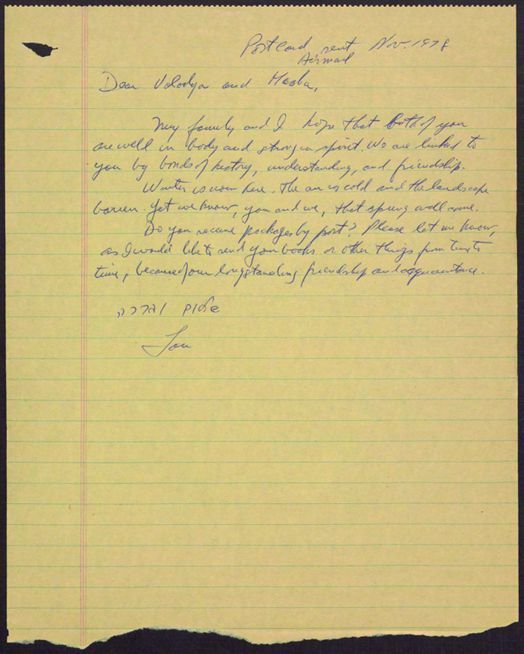 Postcard sent Nov. 1978
Airmail
Dear Volodya and Masha,
My family and I hope that both of you
are well in body and strong in spirit. We are linked to
you by bonds of history, understanding, and friendship.
Winter is now here. The air is cold and the landscape
barren. Yet we know, you and we, that spring will come.
Do you receive packages by post? Please let me know,
as I would like to send you books or other things from time to
time, because of our longstanding friendship and acquaintance.
שלום